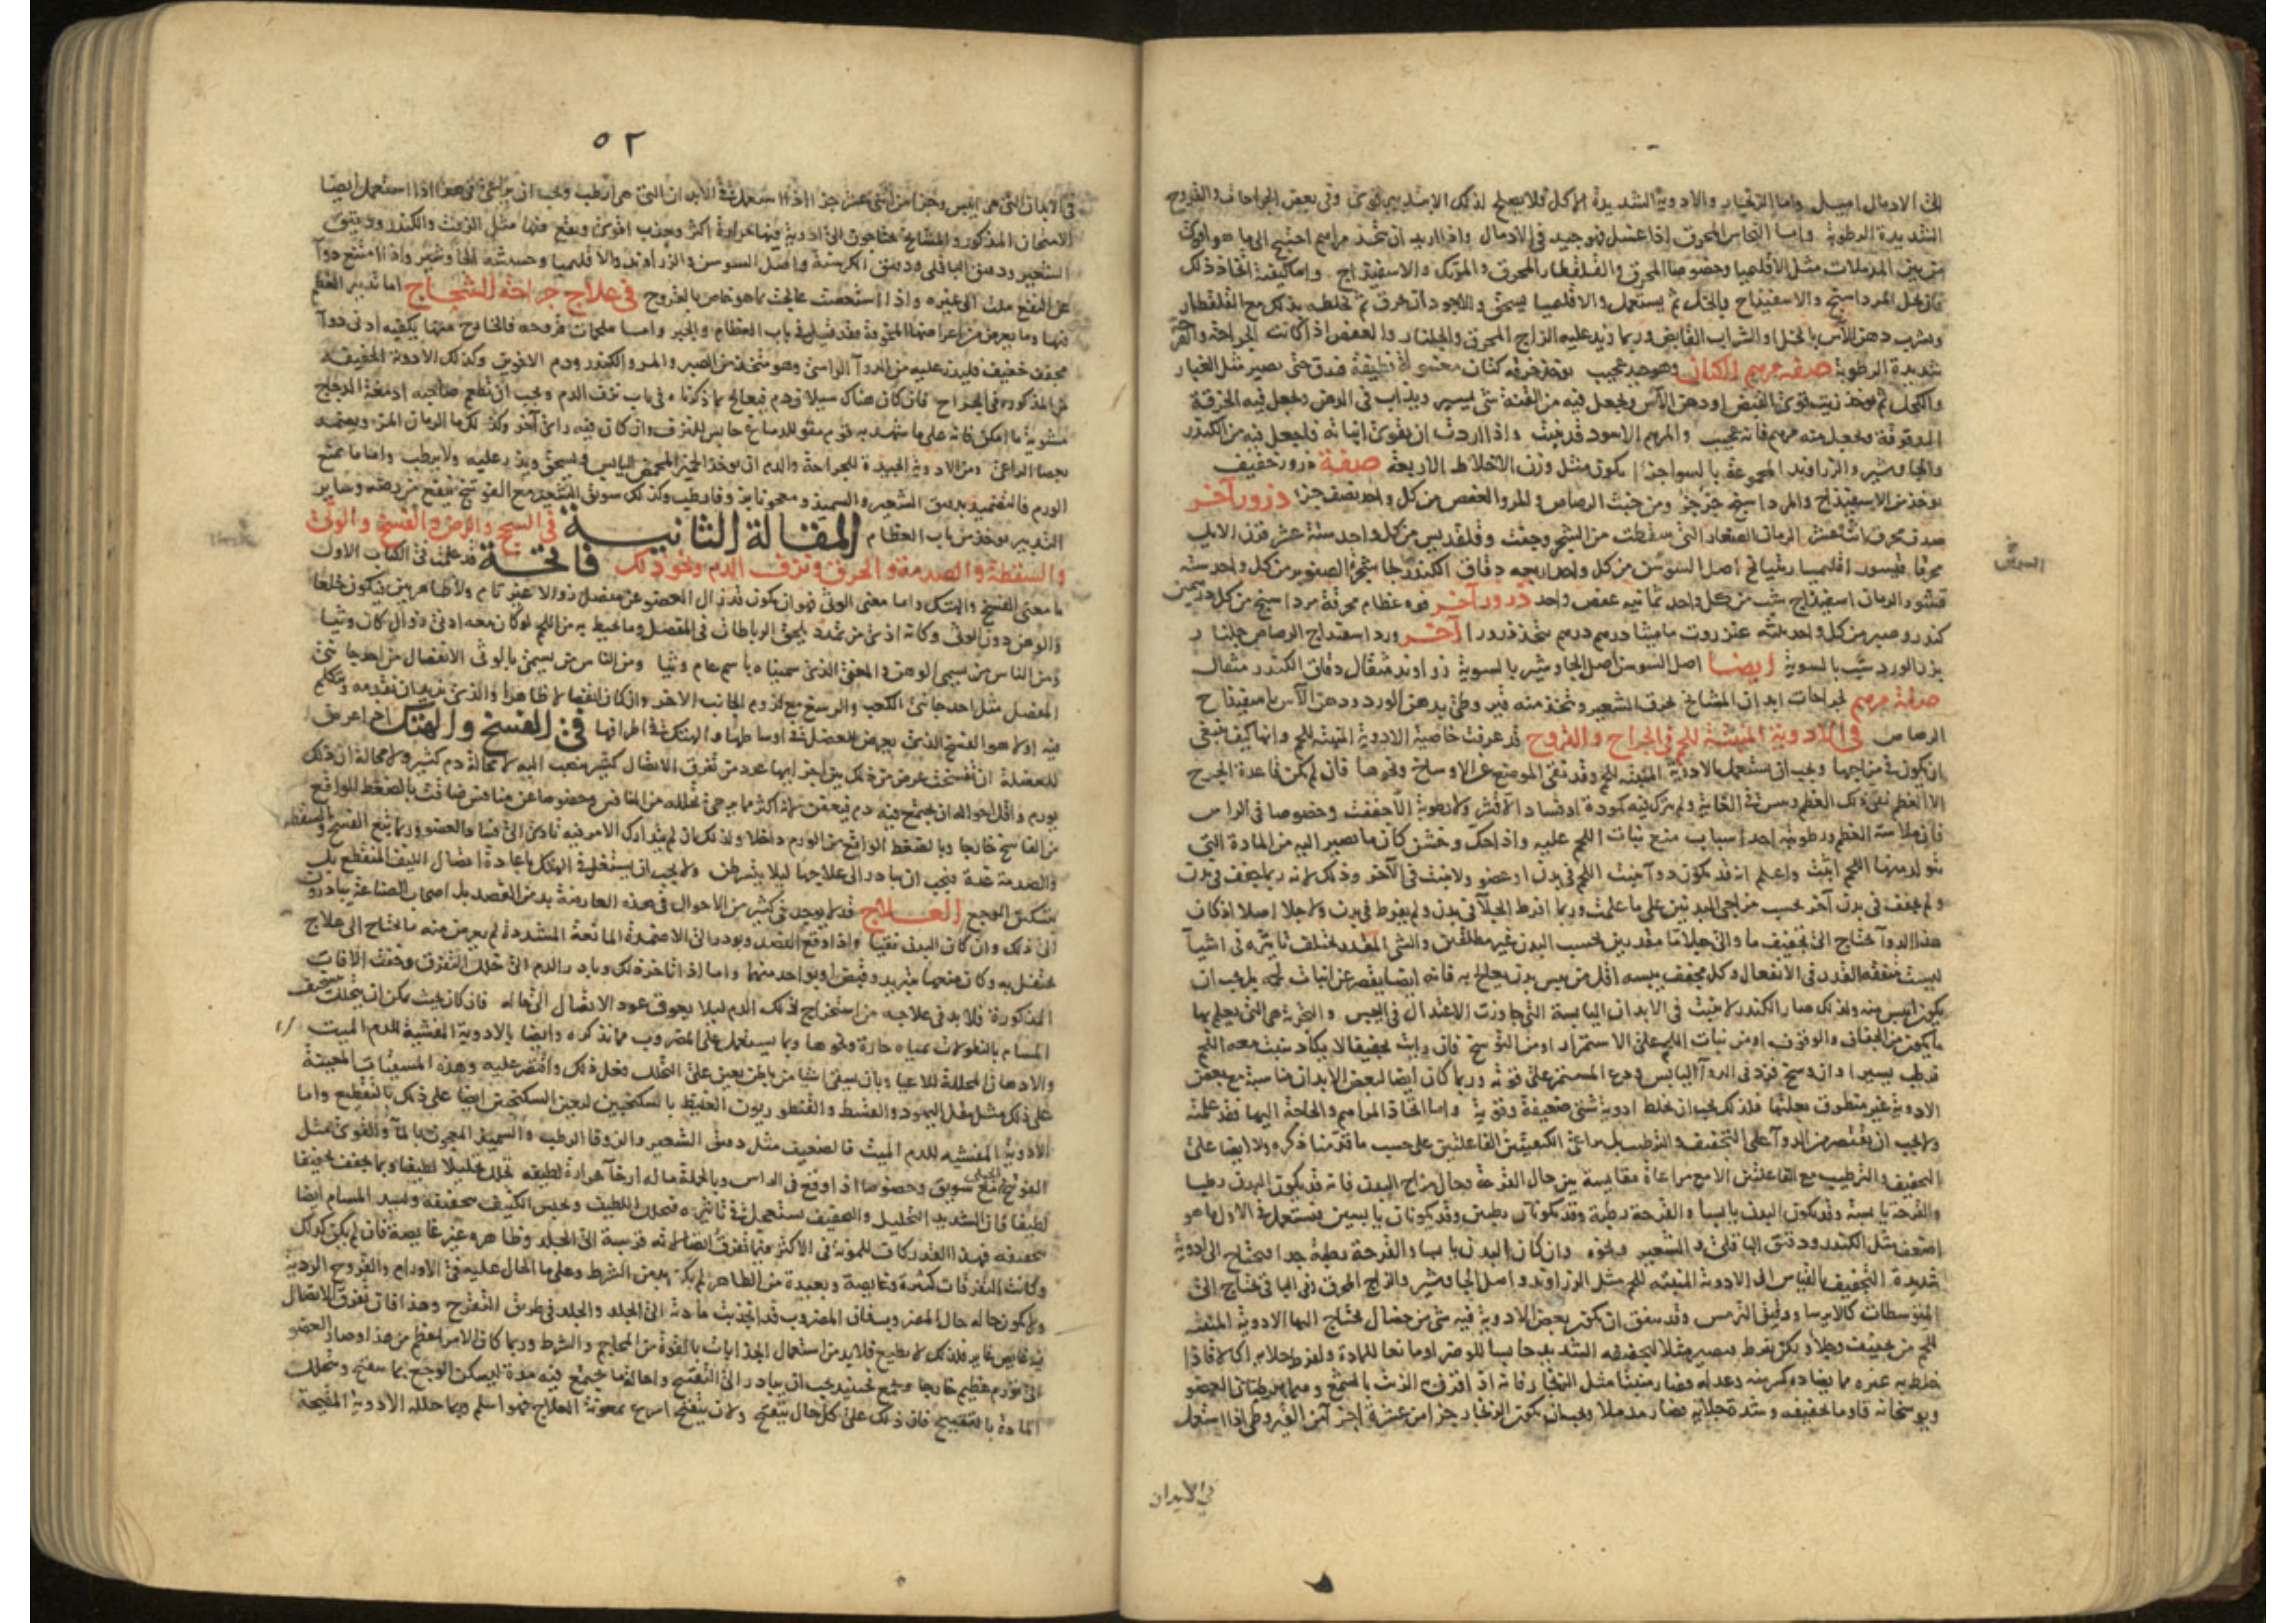 الى الادمال اميل واما الزنجار والادوية الشديدة الاكل فلا يصلح لذلك الا بتدبير قوى وفى بعض الجراحات والقروح
الشديدة الرطوبة واما النحاس المحرق اذا غسل فهو جيد فى الادمال واذا اريد ان يتخذ مراهم احتيج الى ما
من بين المدملات مثل الاقليميا وخصوصا المحرق والقلقطار المحرق والمرتك والاسفيداج واما كيفية اتخاذ ذلك
فان يحل المرداسنج والاسفيذاج بالخل ثم يستعمل والاقليميا يسحق والاجود ان يحرق ثم تخلطه بذلك مع القلقطار
ويشرب دهن الآس بالخل او الشراب القابض وربما زيد عليه الزاج المحرق والجلنار والعفص اذا كانت الجراحة والقرحة
شديدة الرطوبة صفة مرهم الكتان وهو جيد عجيب يوخذ خرقة كتان مغسولة نظيفة فتدق حتى يصير مثل الغبار
والكحل ثم يوخذ زيت قوى القبض او دهن الآس ويجعل فيه من القنة شى يسير ويذاب فى الدهن ويجعل فيه الخرقة
المدقوقة ويجعل منه مرهم فانه عجيب والمرهم الاسود قد ينبت واذا اردت ان يقوى انباته فليجعل فيه من الكندر
والجاوشير والزراوند المجموعة بالسوا جزءا يكون مثل وزن الاخلاط الاربعة صفة ذرور خفيف
يوخذ من الاسفيذاج والمرداسنج جزء جزء ومن خبث الرصاص والمر والعفص من كل واحد نصف جزء ذرور آخر
صدف محرق اثنا عشر الرمان الصغار التى سقطت من الشجر وجفت وقلقديس من كل واحد ستة عشر قرن الايل
محرقا قيسور اقليميا راتيانج اصل السوسن من كل واحد اربعة دقاق الكندر لحا شجرة الصنوبر من كل واحد ستة
قشور الرمان اسفيذاج شب من كل واحد ثمانية عفص واحد ذرور آخر فوه عظام محرقة مرداسنج من كل درهمين
كندر وصبر من كل واحد ثلثة عنزروت ماميثا درهم درهم يتخذ ذرورا آخر ورد اسفيداج الرصاص جلنار
بزر الورد شب بالسوية ايضا اصل السوسن اصل الجاوشير بالسوية زراوند مثقال دقاق الكندر مثقال
صفة مرهم لجراحات ابدان المشايخ يحرق الشعير ويتخذ منه قيروطى بدهن الورد ودهن الآس باسفيذاج
الرصاص فى الادوية المنبتة للحم فى الجراح والقروح قد عرفت خاصية الادوية المنبتة للحم وانها كيف ينبغى
ان يكون فى مزاجها ويجب ان يستعمل الادوية المنبتة للحم وقد نقى الموضع عن الاوساخ ونحوها فان لم يكن قاعدة الجرح
الا العظم نقى ذلك العظم ويبس فى الغاية ولم يترك فيه كمودة او فساد الا قشر ولا رطوبة الا جففت وخصوصا فى الراس
فان ملاسة العظم ورطوبته احد اسباب منع نبات اللحم عليه واذا حك وخشن كان ما يصير اليه من المادة التى
يتولد منها اللحم اثبت واعلم انه قد يكون دوآ ينبت اللحم فى بدن او عضو ولا ينبت فى الآخر وذلك لانه ربما يجفف فى بدن
ولم يجفف فى بدن آخر بحسب مزاجى البدنين على ما علمت وربما افرط الجلآ فى بدن ولم يفرط فى بدن ولا جلا اصلا اذ كان
هذا الدوآ يحتاج الى تجفيف ما والى جلا ما مقدرين بحسب البدن غير مطلقين والشى المقدر يختلف تاثيره فى اشيآ
ليست متفقة القدر فى الانفعال وكل مجفف يبسه اقل من يبس بدن يعالج به فانه ايضا يقصر عن انبات لحمه بل يجب ان
يكون ايبس منه ولذلك صار الكندر لا ينبت فى الابدان اليابسة التى جاوزت الاعتدال فى اليبس والتجربة هى التى يعلم بها
ما يكون من الجفاف والوقوف او من نبات اللحم على الاستمرار او من التوسخ فان رايت تجفيفا لا يكاد ينبت معه اللحم
فرطب يسيرا وان وسخ فزد فى الدوآ اليابس ودع المستمر على قوته وربما كان ايضا لبعض الابدان مناسبة مع بعض
الادوية غير منطوق بعلتها فلذلك يجب ان تخلط ادوية شتى ضعيفة وقوية واما اتخاذ المراهم والحاجة اليها فقد علمته
ولا يجب ان يقتصر من الدوآ على التجفيف والترطيب بل يراعى الكيفيتين الفاعلتين على حسب ما قدمنا ذكره ولا ايضا على
التجفيف والترطيب مع الفاعلتين الا مع مراعاة مقايسة بين حال القرحة وحال مزاج البدن فانه قد يكون البدن رطبا
والقرحة يابسة وقد يكون البدن يابسا والقرحة رطبة وقد يكونان رطبين وقد يكونان يابسين فيستعمل فى الاول ما هو
اضعف مثل الكندر ودقيق الباقلى والشعير ونحوه وان كان البدن يابسا والقرحة رطبة جدا فيحتاج الى ادوية
شديدة التجفيف بالقياس الى الادوية المنبتة للحم مثل الزراوند واصل الجاوشير والزاج المحرق وفى الباقى يحتاج الى
المتوسطات كالايرسا ودقيق الترمس وقد يتفق ان يكون بعض الادوية فيه شى من خصال يحتاج اليها الادوية المنبتة
للحم من تجفيف وجلآ ولكن يفرط فيصير مثلا لتجفيفه الشديد حابسا للوضر او مانعا للمادة ولفرط جلايه اكالا فاذا
خلط به غيره مما يضاده كسر منه وعدله فصار منبتا مثل الزنجار فانه اذا افرق الزيت بالشمع وهما يرطبان العضو
ويوسخانه قاوما تجفيفه وشدة جلايه فصار مدملا ويجب ان يكون الزنجار جزءا من عشرة اجزآ من القيروطى اذا استعمل
فى الابدان
السوسن
٥٢
فى الابدان التى هى ايبس وجزءا من اثنى عشر جزءا اذا استعمل فى الابدان التى هى ارطب ويجب ان يراعى فى هذا اذا استعمل ايضا
الامتحان المذكور والمشايخ يحتاجون الى ادوية فيها حرارة اكثر وجذب اقوى ويقع فيها مثل الزفت والكندر ودقيق
الشعير ودقيق الباقلى ودقيق الكرسنة واصل السوسن والزراوند والاقليميا وحشيشة الجاوشير واذا امتنع دوآ
عن النفع ملت الى غيره واذا استصعب عالجت بما هو خاص بالقروح فى علاج جراحة الشجاج اما تدبير العظم
فيها وما يعرض من اعراضها المخوفة فقد قيل فى باب العظام والجبر واما ملحمات قروحه فالخارج منها يكفيه ادنى دوآ
مجفف خفيف فليذر عليه من الدوآ الراسى وهو متخذ من الصبر والمر والكندر ودم الاخوين وكذلك الادوية الخفيفة
من المذكورة فى الجراح فان كان هناك سيلان دم فيعالج بما ذكرناه فى باب نزف الدم ويجب ان يطعم صاحبه ادمغة الدجاج
مشوية ما امكن فانه على ما شهد به قوم مقو للدماغ حابس للنزف وان كان فيه راى آخر وكذلك ما الرمان المز ويضمد
بعصا الراعى ومن الادوية الجيدة للجراحة والدم ان يوخذ الخبز المحمص اليابس ويسحق ويذر عليه ولا يرطب واما ما يمنع
الورم فالتضميد بدقيق الشعير والسميذ ومعجونا بزوفا رطب وكذلك سويق الشعير مع الفوتنج ينفع من رضه وساير
التدبير يوخذ من باب العظام المقالة الثانية فى السحج والرض والفسخ والوثى
والسقطة والصدمة والخرق ونزف الدم ونحو ذلك فاتحة قد علمت فى الكتاب الاول
ما معنى الفسخ والهتك واما معنى الوثى فهو ان يكون قد زال العضو عن مفصل زوالا غير تام ولا ظاهر بين فيكون خلعا
والوهن دون الوثى وكانه اذى من تمدد يلحق الرباطات فى المفصل وما يحيط به من اللحم لو كان معه ادنى زوال كان وثيا
ومن الناس من يسمى الوهن والمعنى الذى سميناه باسم عام وثيا ومن الناس من يسمى بالوثى الانفصال من احد جانبى
المفصل مثل احد جانبى الكعب والرسغ مع لزوم الجانب الاخر وان كان انفصالا ظاهرا والذى نريد ان نقدمه ونتكلم
فيه اولا هو الفسخ الذى يعرض للعضل فى اوساطها والهتك فى اطرافها فى الفسخ والهتك اذا عرض
للعضلة ان انفسخت عرض من ذلك بين اجزايها عدد من تفرق الاتصال كثير ينصب اليه لا محالة دم كثير ولا محالة ان ذلك
يورم واقل احواله ان يجتمع فيه دم فيعفن لانه اكثر مما يرجى تحلله من المنافس وخصوصا عن منافس ضاقت بالضغط الواقع
من الفاسخ خارجا وبالضغط الواقع من الورم داخلا ولذلك ان لم يتدارك الامر فيه تادى الى فساد العضو وربما يتبع الفسخ والسقطة
والصدمة غدة فيجب ان يبادر الى علاجها ليلا يتسرطن ولا يجب ان يشتغل فى الهتك باعادة اتصال الليف المنقطع بل
بتسكين الوجع العلاج قد لا يوجد فى كثير من الاحوال فى هذه العارضة بد من الفصد بل اصحاب الصناعة يبادرون
الى ذلك وان كان البدن نقيا واذا وقع الفصد وبودر الى الاضمدة المانعة المشددة لم يعرض منه ما يحتاج الى علاج
يحتفل به وكان منعها بتبريد وقبض او بواحد منهما واما اذا تاخر ذلك وبادر الدم الى خلل التفرق وخفت الافات
المذكورة فلا بد فى علاجه من استخراج ذلك الدم ليلا يعوق عود الاتصال الى حاله فان كان بحيث يمكن ان يتحلل بتوسيع
المسام بالنطولات بمياه حارة ونحوها وبما يستعمل على المضروب مما نذكره وايضا بالادوية المفشية للدم الميت
والادهان المحللة للاعيا وبان يسقى اشيا من باطن يعين على التحلل فعل ذلك واقتصر عليه وهذه المسقيات المعينة
على ذلك مثل مقل اليهود والقسط والقنطوريون الغليظ بالسكنجبين ليعين السكنجبين ايضا على ذلك بالتقطيع واما
الادوية المفشية للدم الميت فالضعيف مثل دقيق الشعير والزوفا الرطب والسميذ المعجون بالمآ والقوى مثل
الفوتنج الجبلى مع سويق وخصوصا اذا وقع فى الراس وبالجملة ما له ارخآ حرارة لطيفة تحلل تحليلا لطيفا وبما يجفف تجفيفا
لطيفا فان الشديد التحليل والتجفيف يستعجل فى تاثيره فيحلل اللطيف ويحبس الكثيف بتجفيفه ويسد المسام ايضا
بتجفيفه فهذا القدر كاف للمونة فى الاكثر فيما تفرق اتصاله قريبة الى الجلد وظاهره غير غايصة فان لم يكن كذلك
وكانت التفرقات كثيرة وغايصة وبعيدة من الظاهر لم يكن بد من الشرط وعلى ما الحال عليه فى الاورام والقروح الردية
ولا يكون حاله حال المضروب فان المضروب قد انجذبت مادته الى الجلد والجلد فى طريق التقرح وهذا فان تفرق الاتصال
فيه غايص غاير فلذلك لا يطمع فلا بد من استعمال الجذابات بالقوة من المحاجم والشرط وربما كان الامر اعظم من هذا وصار العضو
الى تورم عظيم خارجا وجمع فحينيذ يجب ان يبادر الى التفتيح واحالة ما يجتمع فيه مدة ليسكن الوجع بما يفتح ويتحلل
المادة بالتقييح فان ذلك على كل حال يتفتح ولان يتفتح اسرع بمعونة العلاج فهو اسلم وربما حلله الادوية المقيحة